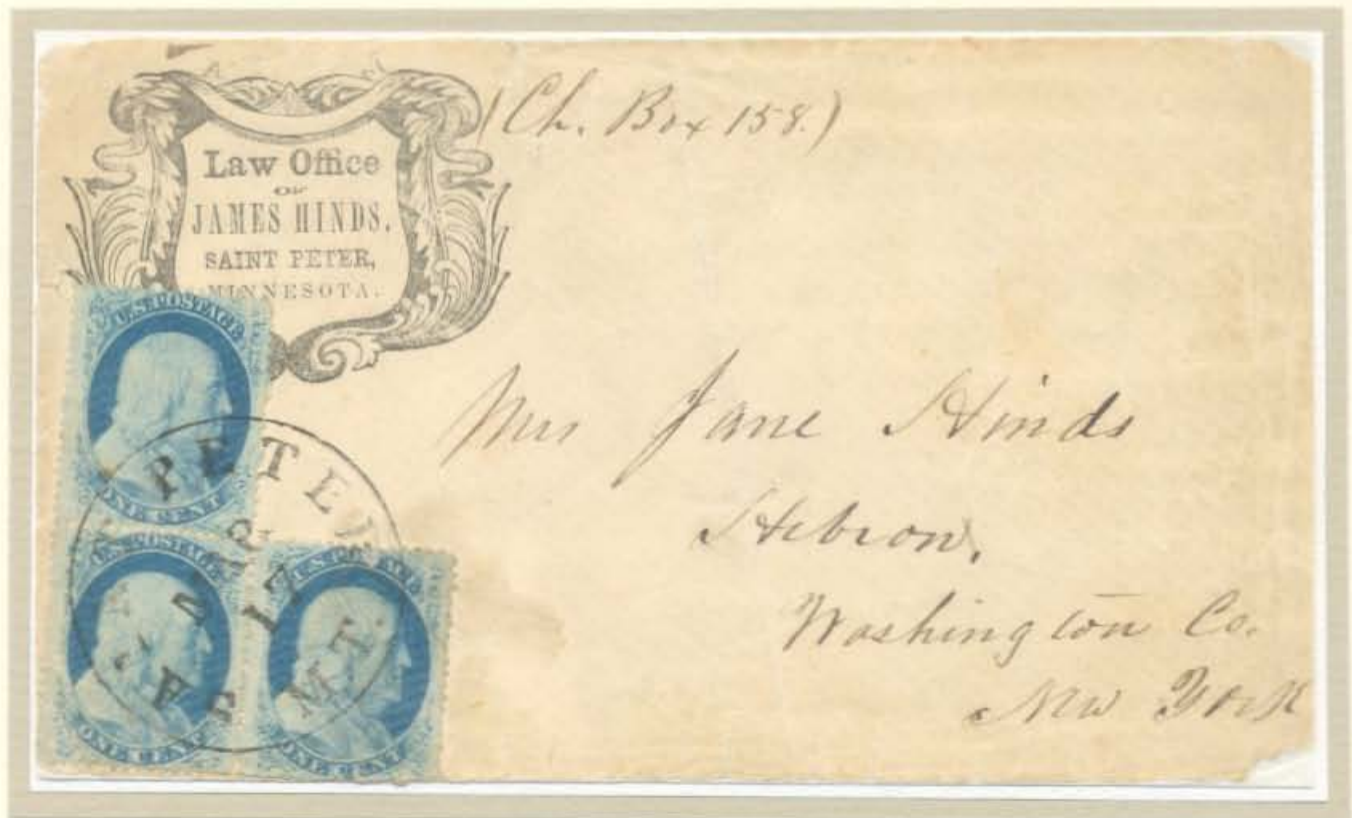 (Ch. Box 158.)
Law Office
OF
JAMES HINDS,
SAINT PETER,
MINNESOTA.
U.S. POSTAGE
ONE CENT
U.S. POSTAGE
ONE CENT
U.S. POSTAGE
ONE CENT
PETER
MAR
17
M.T.
Mrs Jane Hinds
Hebron,
Washington Co.
New York